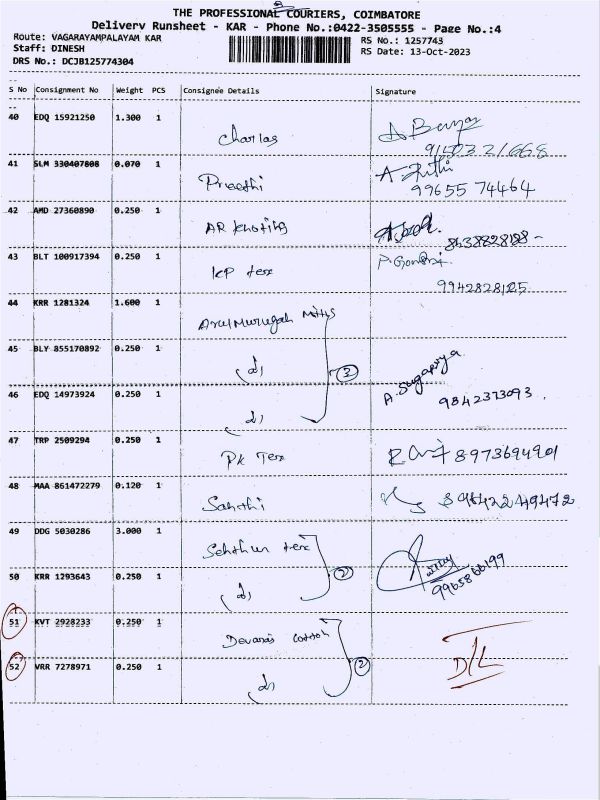 THE PROFESSIONAL COURIERS, COIMBATORE
Delivery Runsheet - KAR - Phone No.:0422-3505555 - Page No.:4
Route: VAGARAYAMPALAYAM KAR
RS No.: 1257743
Staff: DINESH
RS Date: 13-Oct-2023
DRS No.: DCJB125774304
S No Consignment No Weight PCS Consignee Details Signature
40 EDQ 15921250 1.300 1
Charlas
41 SLM 330407808 0.070 1
Preethi
99655 74464
42 AMD 27360890 0.250 1
AR
43 BLT 100917394 0.250 1
KP tex
9942828125
44 KRR 1281324 1.600 1
Arulmurugan Mills
45 BLY 855170892 0.250 1
3
46 EDQ 14973924 0.250 1
A. Sugapriya
9842373093
47 TRP 2509294 0.250 1
PK Tex
8973694901
48 MAA 861472279 0.120 1
49 DDG 5030286 3.000 1
tex
50 KRR 1293643 0.250 1
2
9965866199
51 KVT 2928233 0.250 1
Devaras cotton
52 VRR 7278971 0.250 1
2
D/L